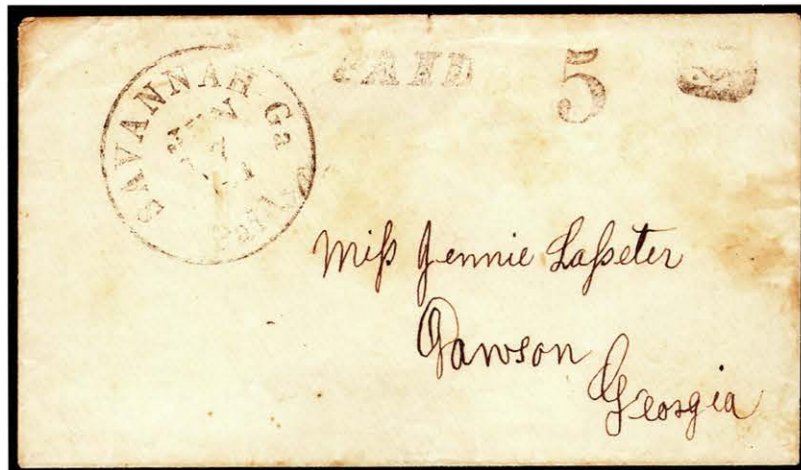 SAVANNAH Ga
JUN
PAID
PAID
5
Miss Jennie Lasseter
Dawson
Georgia